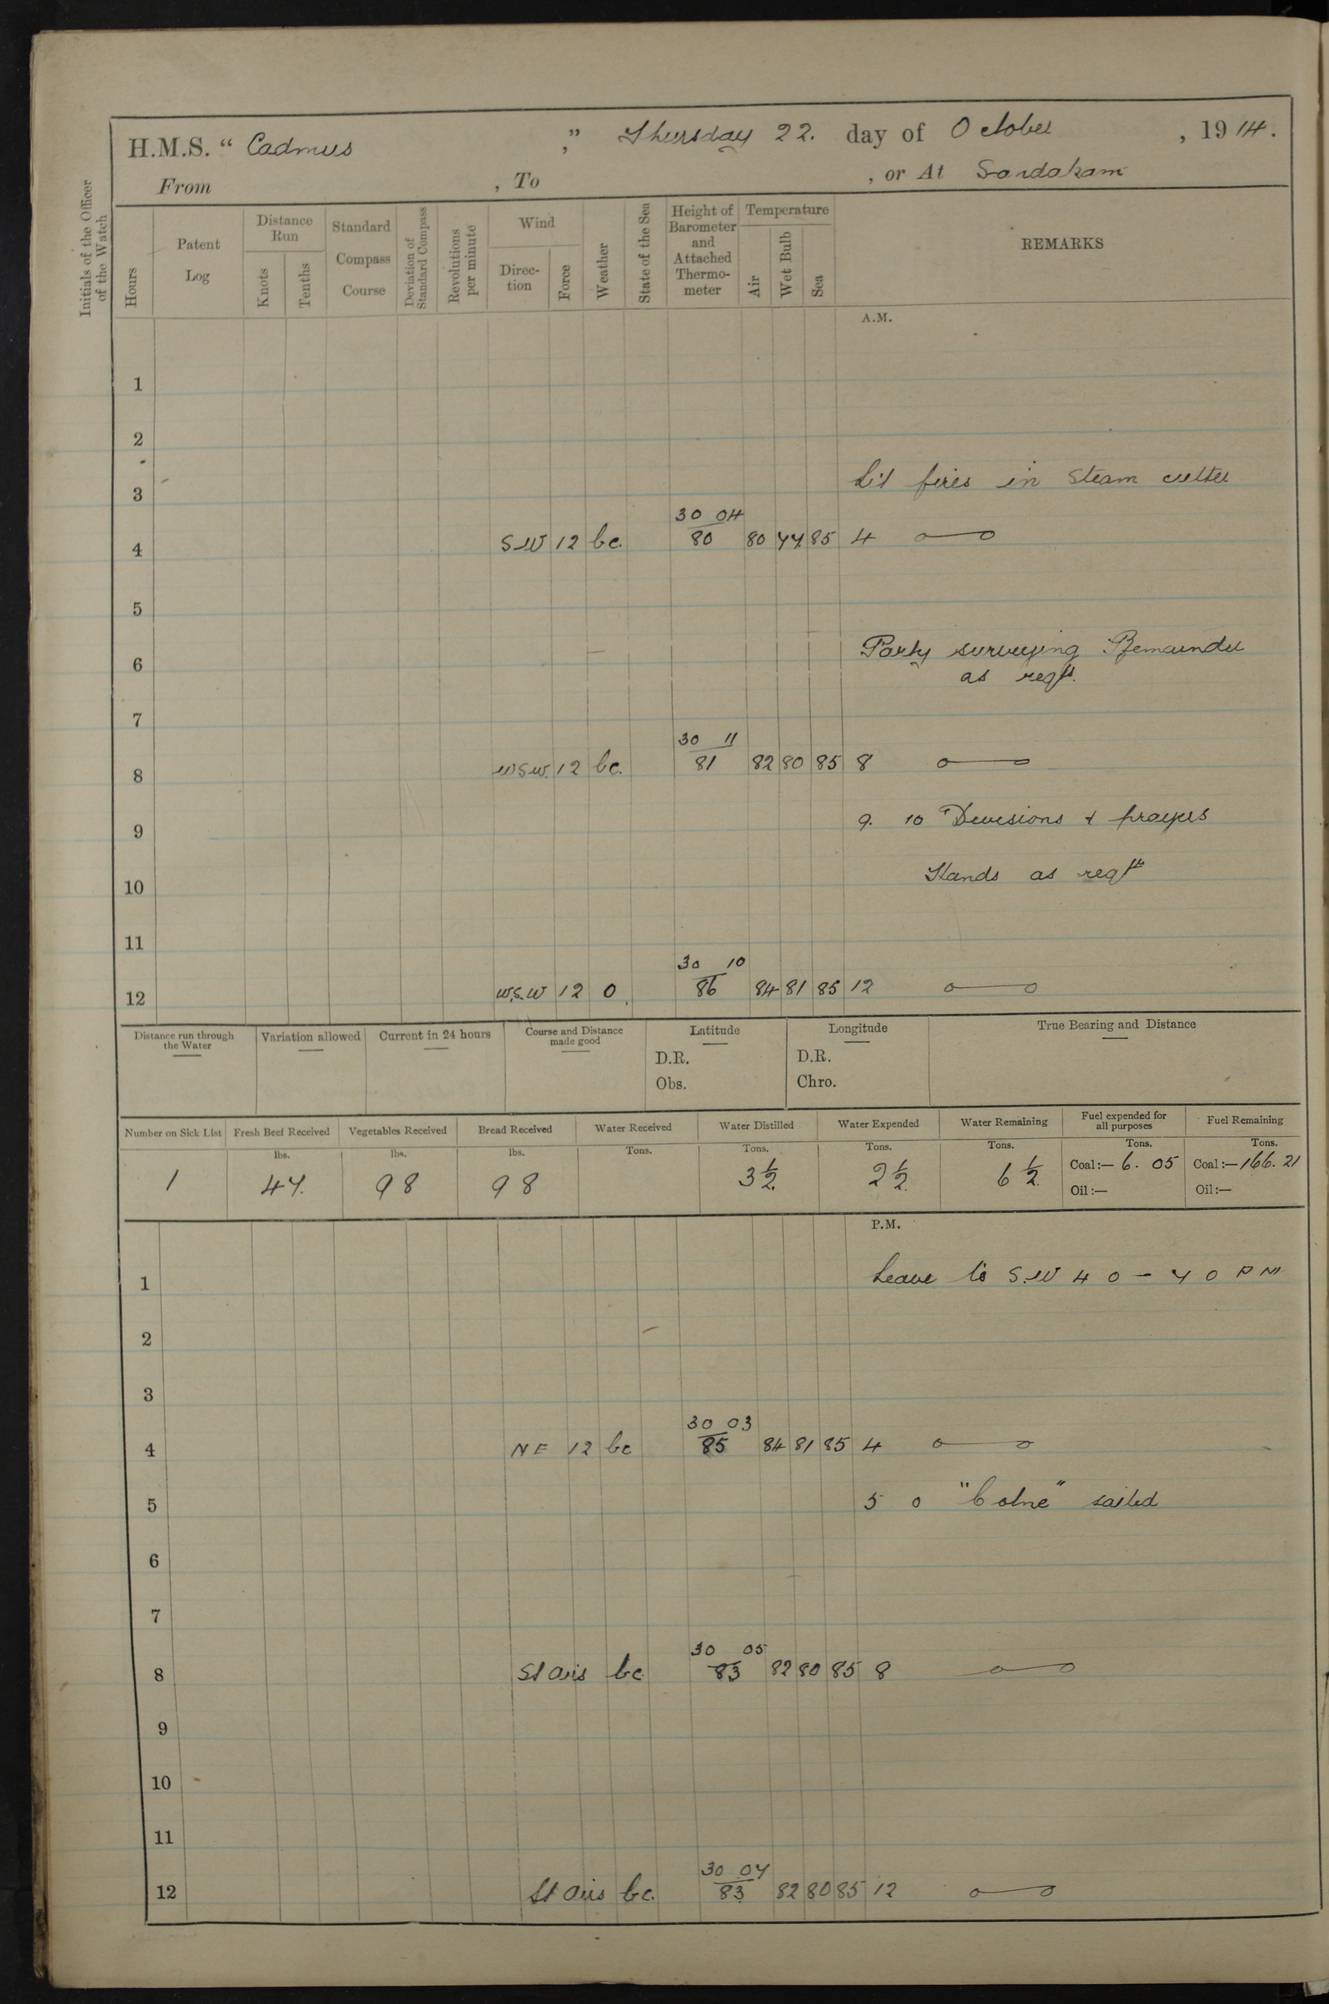 H.M.S. “ Cadmus ,” Thursday 22. day of October , 1914.
From , To , or At Sandakan
Initials of the Officer of the Watch
Hours
Patent Log
Distance Run
Knots
Tenths
Standard Compass Course
Deviation of Standard Compass
Revolutions per minute
Wind
Direc-tion
Force
Weather
State of the Sea
Height of Barometer and Attached Thermo-meter
Temperature
Air
Wet Bulb
Sea
REMARKS
A.M.
1
2
Lit fires in Steam cutter
3
30 04
4 SW 12 bc. 80 80 77 85 4
5
Party surveying Remainder
6
as reqd.
7
30 11
8 WSW. 12 bc. 81 82 80 85 8
9 9. 10 Devisions & prayers
10 Hands as reqd
11
30 10
12 W.S.W 12 0 86 84 81 85 12
Distance run through the Water
Variation allowed
Current in 24 hours
Course and Distance made good
Latitude
D.R.
Obs.
Longitude
D.R.
Chro.
True Bearing and Distance
Number on Sick List
Fresh Beef Received
Vegetables Received
Bread Received
Water Received
Water Distilled
Water Expended
Water Remaining
Fuel expended for all purposes
Fuel Remaining
lbs. lbs. lbs. Tons. Tons. Tons. Tons. Tons. Tons.
1 47. 98 98 3½. 2½. 6½. Coal:— 6. 05 Coal:— 166. 21
Oil:— Oil:—
P.M.
1 Leave to S.W 4 0 - 7 0 PM
2
3
30 03
4 NE 12 bc 85 84 81 85 4
5 5 0 "Colne" sailed
6
7
30 05
8 St airs bc 83 82 80 85 8
9
10
11
30 04
12 Lt airs bc. 83 82 80 85 12